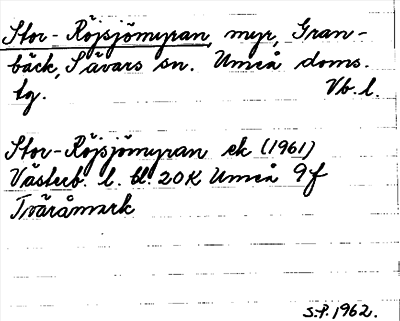 Stor-Röjsjömyran, myr, Gran-
bäck, Sävars sn. Umeå doms.
tg. Vb.l.
Stor-Röjsjömyran ek (1961)
Västerb. l. bl. 20K Umeå 9f
Tväråmark
S.P. 1962.